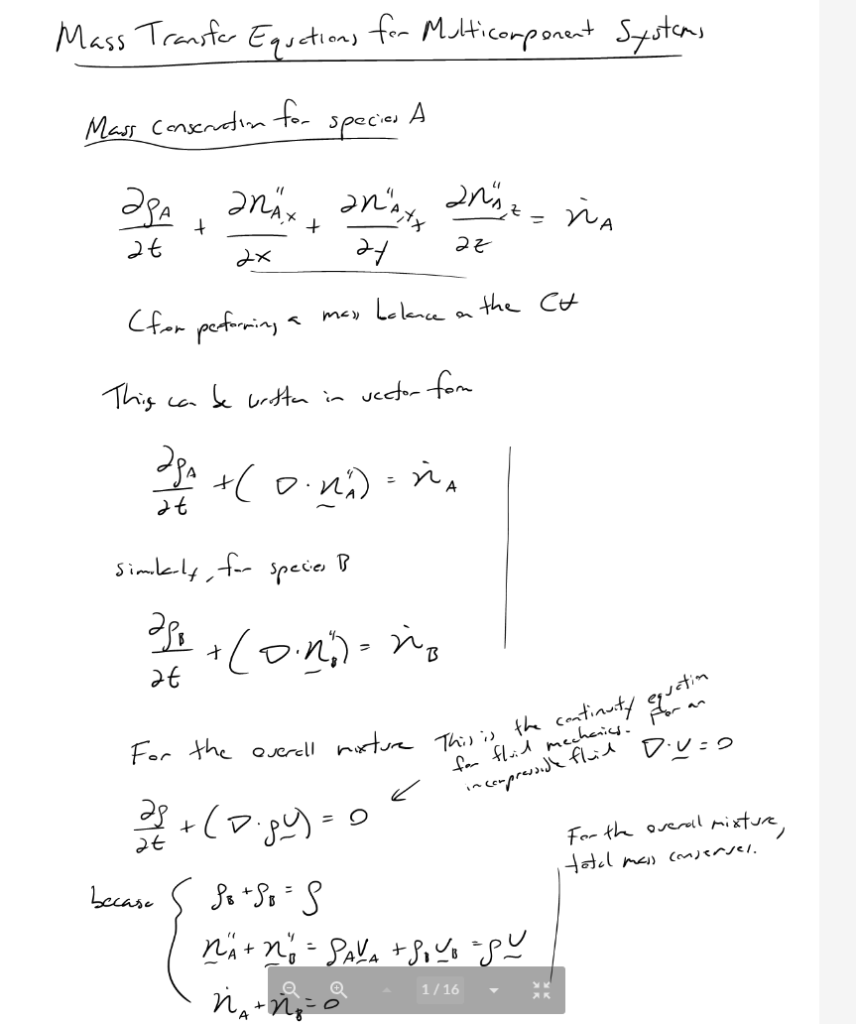 Mass Transfer Equations for Multicomponent Systems
Mass conservation for species A
∂ρ_A/∂t + ∂n''_A,x/∂x + ∂n''_A,y/∂y + ∂n''_A,z/∂z = ṅ_A
(from performing a mass balance on the CV
This can be written in vector form
∂ρ_A/∂t + (∇·n''_A) = ṅ_A
similarly, for species B
∂ρ_B/∂t + (∇·n''_B) = ṅ_B
For the overall mixture
This is the continuity equation
for fluid mechanics. For an
incompressible fluid ∇·v = 0
∂ρ/∂t + (∇·ρv) = 0
For the overall mixture,
total mass conserves.
because { ρ_B + ρ_B = ρ
n''_A + n''_B = ρ_A v_A + ρ_B v_B = ρv
ṅ_A + ṅ_B = 0
1 / 16